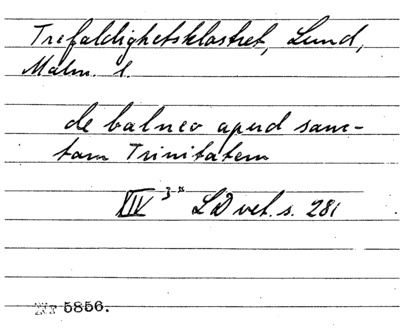 Trefaldighetsklostret, Lund,
Malm. l.
de balneo apud sanc-
tam Trinitatem
XIV 3-4 LD vet. s. 281
Nr 5856.